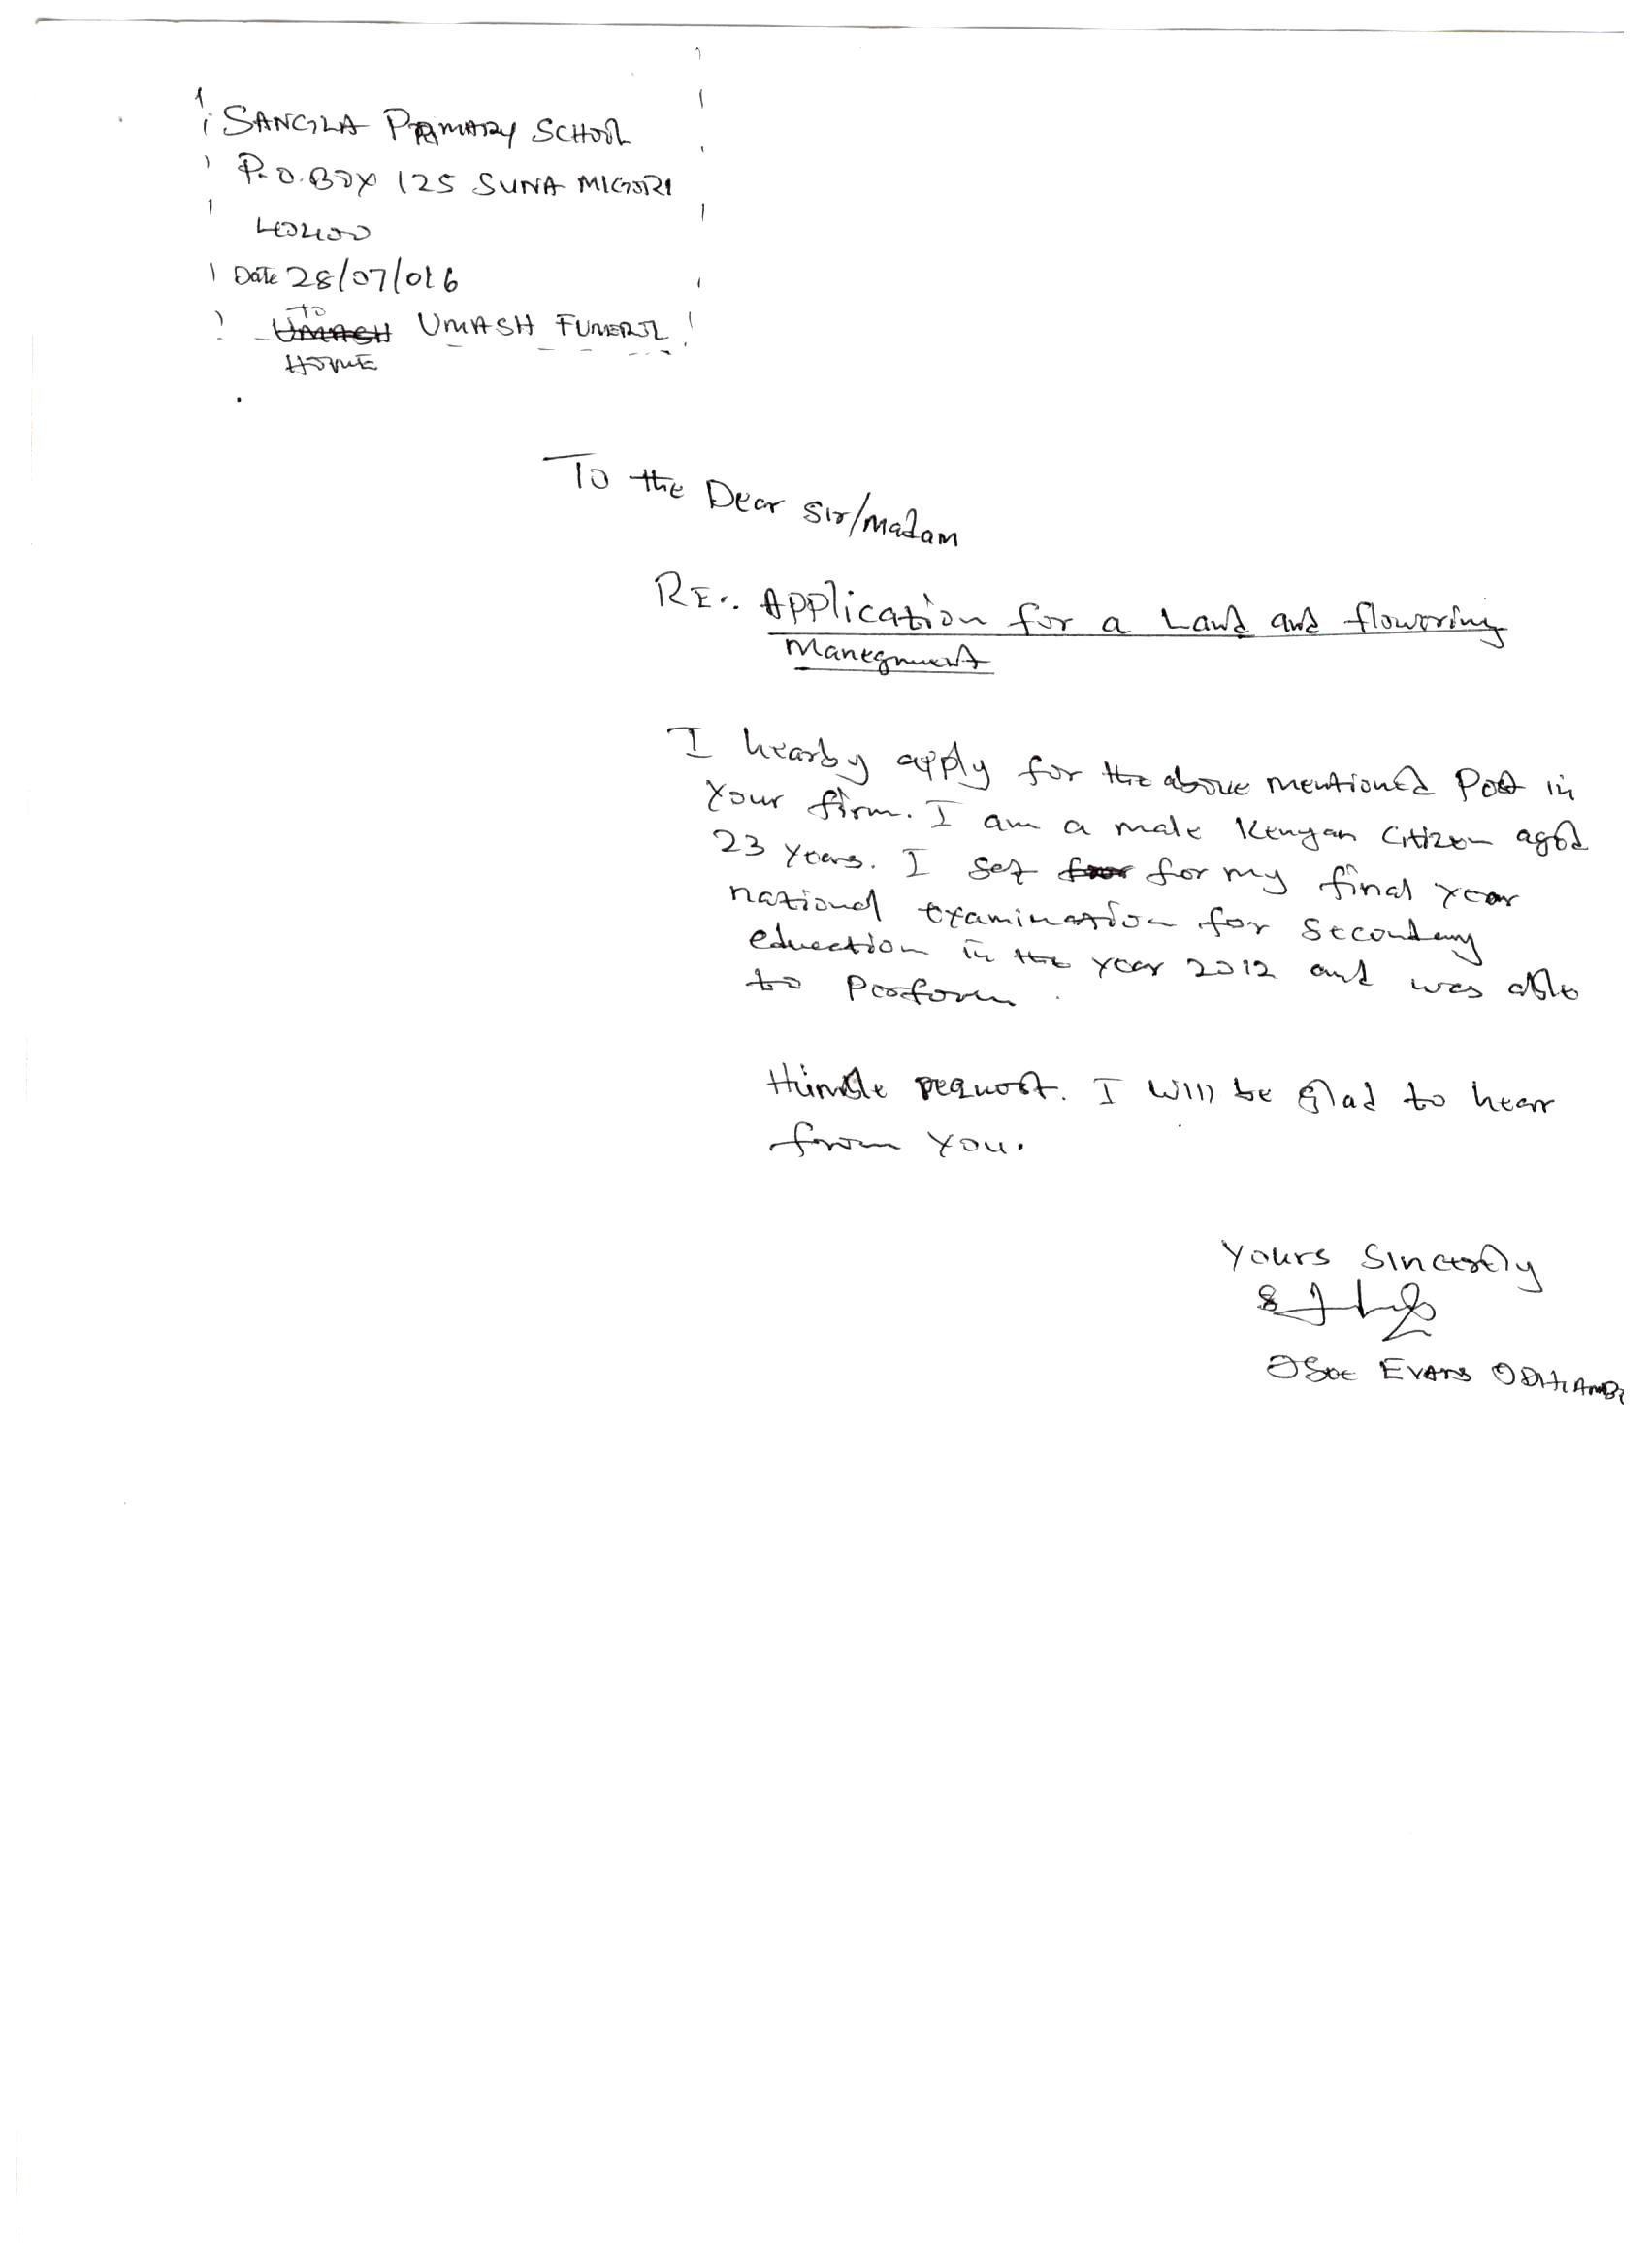 SANGLA PRIMARY SCHOOL
P.O. BOX 125 SUNA MIGORI
40400
Date 28/07/016
TO
UMASH UMASH FUNERL
HOME
To the Dear Sir/madam
RE:. Application for a Land and flowering
Manegment
I hearby apply for the above mentioned Post in
your firm. I am a male Kenyan Citizen aged
23 years. I sat for my final year
national examination for Secondary
education in the year 2012 and was able
to Perform.
Humble request. I will be glad to hear
from you.
Yours Sincerly
EVANS